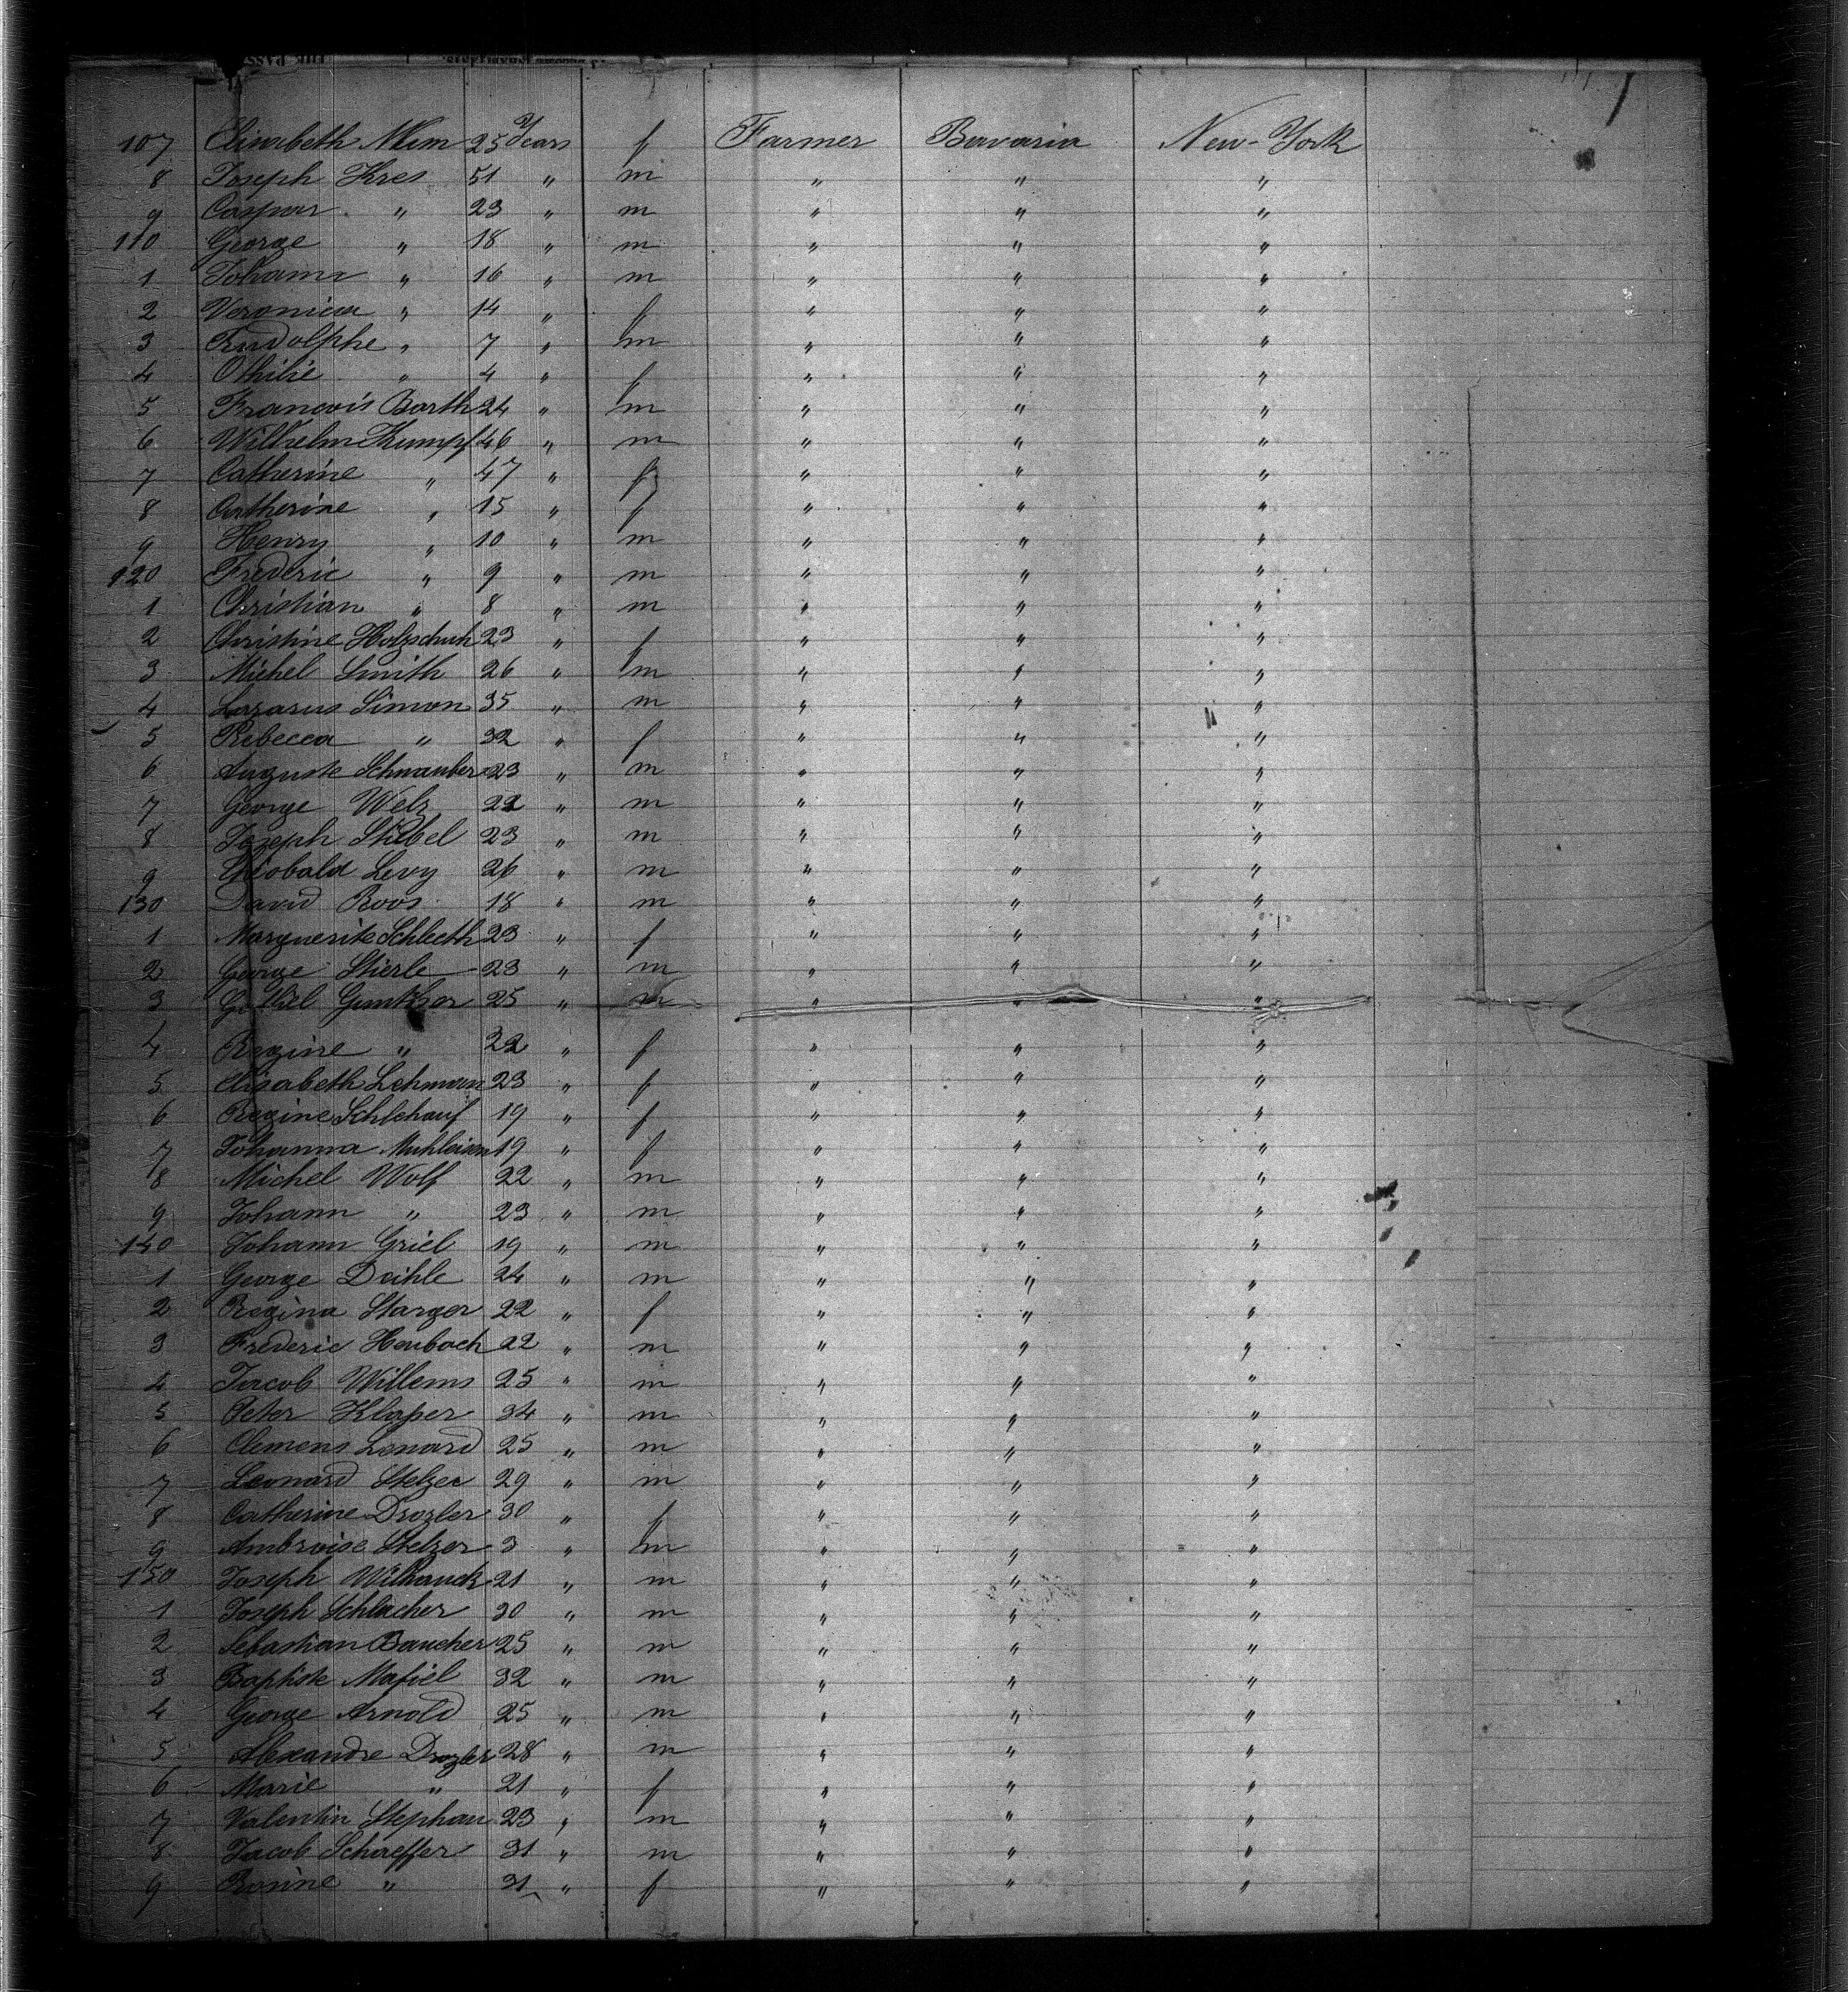 107 Elisabeth Mlim 25 Years f Farmer Bavaria New-York
8 Joseph Kres 51 " m " " "
9 Caspar " 23 " m " " "
110 George " 18 " m " " "
1 Johann " 16 " m " " "
2 Veronica " 14 " f " " "
3 Rudolphe " 7 " m " " "
4 Othilie " 4 " f " " "
5 Francois Barth 24 " m " " "
6 Wilhelm Kumpf 46 " m " " "
7 Catherine " 47 " f " " "
8 Catherine " 15 " f " " "
9 Henry " 10 " m " " "
120 Frederic " 9 " m " " "
1 Christian " 8 " m " " "
2 Christine Holzschuh 23 " f " " "
3 Michel Smith 26 " m " " "
4 Lazarus Simon 35 " m " " "
5 Rebecca " 32 " f " " "
6 Auguste Schnauber 23 " m " " "
7 George Welz 22 " m " " "
8 Joseph Stiebel 23 " m " " "
9 Thiobald Levy 26 " m " " "
130 David Roos 18 " m " " "
1 Marguerite Schlecth 23 " f " " "
2 George Stierle 23 " m " " "
3 Gunther 25 " m " " "
4 Regine " 22 " f " " "
5 Elisabeth Lehmann 23 " f " " "
6 Regine Schlehauf 19 " f " " "
7 Johanna Muhleisen 19 " f " " "
8 Michel Wolf 22 " m " " "
9 Johann " 23 " m " " "
140 Johann Griel 19 " m " " "
1 George Deihle 24 " m " " "
2 Regina Starger 22 " f " " "
3 Frederic Haubach 22 " m " " "
4 Jacob Willems 25 " m " " "
5 Peter Klaper 34 " m " " "
6 Clemens Lenard 25 " m " " "
7 Leonard Stelzer 29 " m " " "
8 Catherine Drozler 30 " f " " "
9 Ambroise Stelzer 3 " m " " "
150 Joseph Wilhauck 21 " m " " "
1 Joseph Schlacher 30 " m " " "
2 Sebastian Baucher 25 " m " " "
3 Baptiste Mafiel 32 " m " " "
4 George Arnold 25 " m " " "
5 Alexandre Drozler 28 " m " " "
6 Marie " 21 " f " " "
7 Valentin Stephan 23 " m " " "
8 Jacob Schaeffer 31 " m " " "
9 Rosine " 31 " f " " "